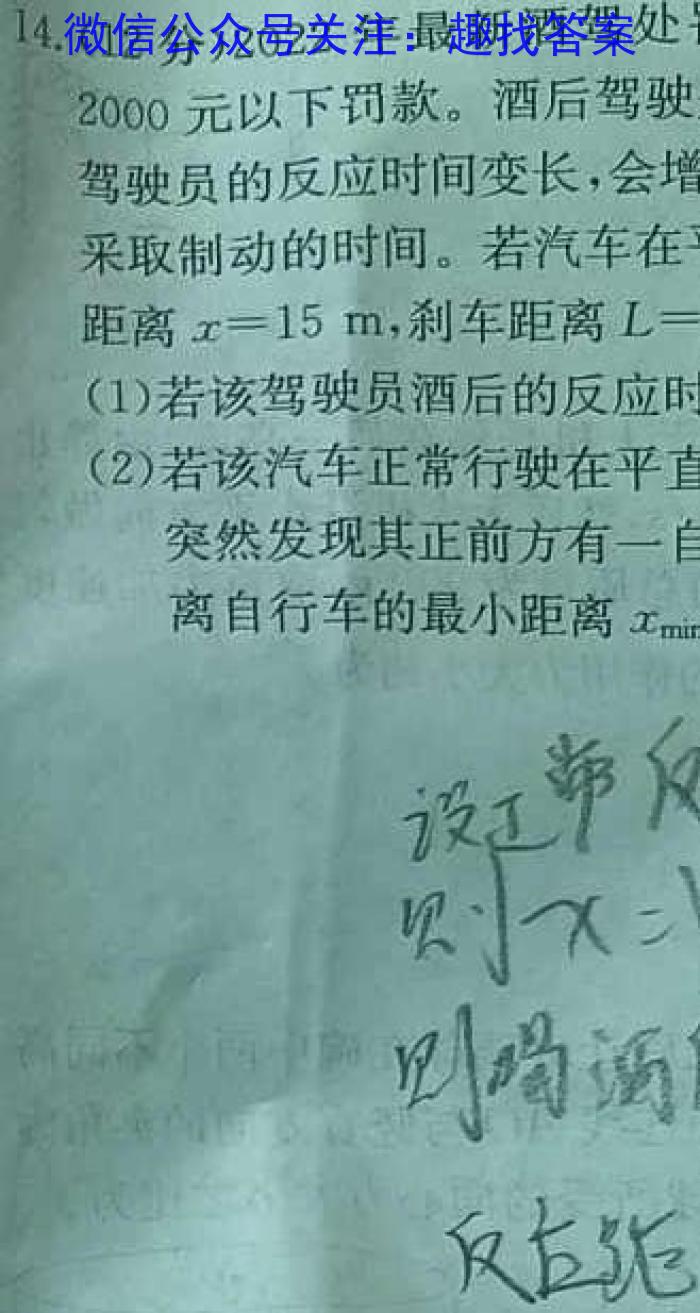 14.
微信公众号关注：趣找答案
2000 元以下罚款。酒后驾驶
驾驶员的反应时间变长,会增
采取制动的时间。若汽车在平
距离 x=15 m,刹车距离 L=
(1)若该驾驶员酒后的反应时
(2)若该汽车正常行驶在平直
突然发现其正前方有一自
离自行车的最小距离 xmin
设正常反
则 x =
则喝酒
反应距